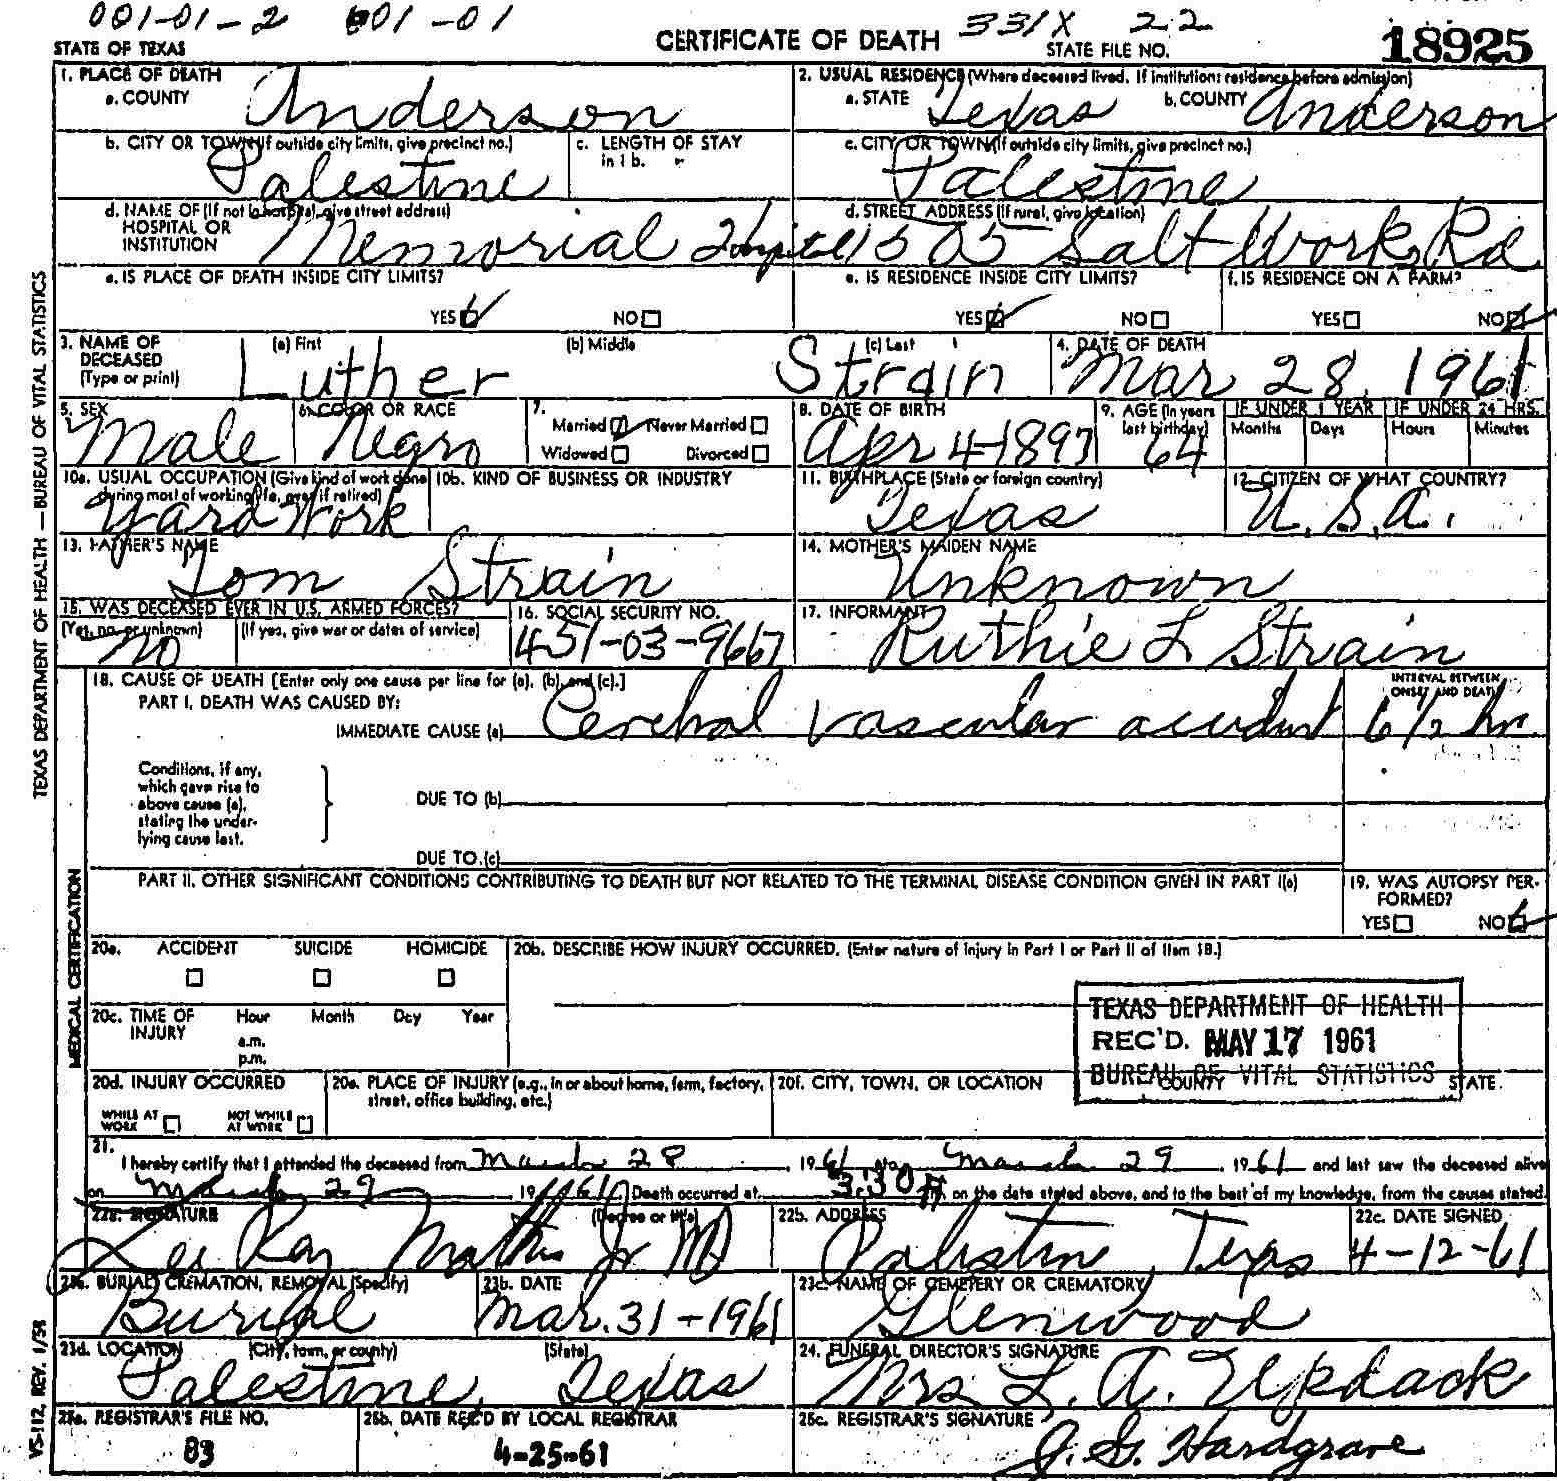 001-01-2 001-01 331X 22
STATE OF TEXAS CERTIFICATE OF DEATH STATE FILE NO. 18925
1. PLACE OF DEATH
a. COUNTY Anderson
2. USUAL RESIDENCE (Where deceased lived. If institution: residence before admission)
a. STATE Texas b. COUNTY Anderson
b. CITY OR TOWN (If outside city limits, give precinct no.) Palestine
c. LENGTH OF STAY in 1 b.
c. CITY OR TOWN (If outside city limits, give precinct no.) Palestine
d. NAME OF (If not in hospital, give street address) HOSPITAL OR INSTITUTION Memorial Hospital
d. STREET ADDRESS (If rural, give location) 1505 Salt Work Rd
e. IS PLACE OF DEATH INSIDE CITY LIMITS?
YES ☑ NO ☐
e. IS RESIDENCE INSIDE CITY LIMITS?
YES ☑ NO ☐
f. IS RESIDENCE ON A FARM?
YES ☐ NO ☑
3. NAME OF DECEASED (Type or print) (a) First Luther (b) Middle (c) Last Strain
4. DATE OF DEATH Mar 28, 1961
5. SEX Male
6. COLOR OR RACE Negro
7. Married ☑ Never Married ☐
Widowed ☐ Divorced ☐
8. DATE OF BIRTH Apr 4-1897
9. AGE (In years last birthday) 64
IF UNDER 1 YEAR Months Days
IF UNDER 24 HRS. Hours Minutes
10a. USUAL OCCUPATION (Give kind of work done during most of working life, even if retired) Yard Work
10b. KIND OF BUSINESS OR INDUSTRY
11. BIRTHPLACE (State or foreign country) Texas
12. CITIZEN OF WHAT COUNTRY? U.S.A.
13. FATHER'S NAME Tom Strain
14. MOTHER'S MAIDEN NAME Unknown
15. WAS DECEASED EVER IN U.S. ARMED FORCES?
(Yes, no, or unknown) No (If yes, give war or dates of service)
16. SOCIAL SECURITY NO. 451-03-9667
17. INFORMANT Ruthie L Strain
18. CAUSE OF DEATH [Enter only one cause per line for (a), (b), and (c).]
PART I. DEATH WAS CAUSED BY:
IMMEDIATE CAUSE (a) Cerebral vascular accident
INTERVAL BETWEEN ONSET AND DEATH 6 1/2 hr
Conditions, if any, which gave rise to above cause (a), stating the under-lying cause last.
DUE TO (b)
DUE TO (c)
PART II. OTHER SIGNIFICANT CONDITIONS CONTRIBUTING TO DEATH BUT NOT RELATED TO THE TERMINAL DISEASE CONDITION GIVEN IN PART I(a)
19. WAS AUTOPSY PER-FORMED?
YES ☐ NO ☑
20a. ACCIDENT ☐ SUICIDE ☐ HOMICIDE ☐
20b. DESCRIBE HOW INJURY OCCURRED. (Enter nature of injury in Part I or Part II of Item 18.)
20c. TIME OF INJURY Hour Month Day Year
a.m.
p.m.
TEXAS DEPARTMENT OF HEALTH
REC'D. MAY 17 1961
BUREAU OF VITAL STATISTICS
20d. INJURY OCCURRED
WHILE AT WORK ☐ NOT WHILE AT WORK ☐
20e. PLACE OF INJURY (e.g., in or about home, farm, factory, street, office building, etc.)
20f. CITY, TOWN, OR LOCATION COUNTY STATE
21. I hereby certify that I attended the deceased from March 28, 1961 to March 29, 1961 and last saw the deceased alive
on March 29 1961 Death occurred at 3:30 A m. on the date stated above, and to the best of my knowledge, from the causes stated.
22a. SIGNATURE (Degree or title) Ray Jr MD
22b. ADDRESS Palestine, Texas
22c. DATE SIGNED 4-12-61
23a. BURIAL, CREMATION, REMOVAL (Specify) Burial
23b. DATE Mar. 31-1961
23c. NAME OF CEMETERY OR CREMATORY Glenwood
23d. LOCATION (City, town, or county) (State) Palestine, Texas
24. FUNERAL DIRECTOR'S SIGNATURE Mrs L. A. Updack
25a. REGISTRAR'S FILE NO. 83
25b. DATE REC'D BY LOCAL REGISTRAR 4-25-61
25c. REGISTRAR'S SIGNATURE J. G. Hardgrave
TEXAS DEPARTMENT OF HEALTH — BUREAU OF VITAL STATISTICS
MEDICAL CERTIFICATION
VS-112, REV. 1/58